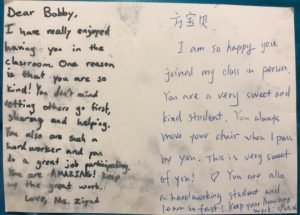 Dear Bobby,
I have really enjoyed
having you in the
classroom. One reason
is that you are so
kind! You don't mind
letting others go first,
sharing and helping.
You also are such a
hard worker and you
do a great job participating.
You are AMAZING! Keep
up the great work.
Love, Ms. Ziyad
方宝贝
I am so happy you
joined my class in person.
You are a very sweet and
kind student. You always
move your chair when I pass
by you. This is very sweet
of you! You are also
a hard working student and
learn so fast! Keep your